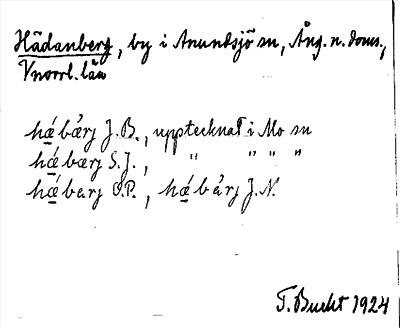 Hädanberg, by i Anundsjö sn, Ång. n. doms.,
Vnorrl. län
hǽbàrj J.B., upptecknat i Mo sn
hǽbærj S.J., " " " "
hǽbarj O.P., hǽbàrj J.N.
T. Bucht 1924